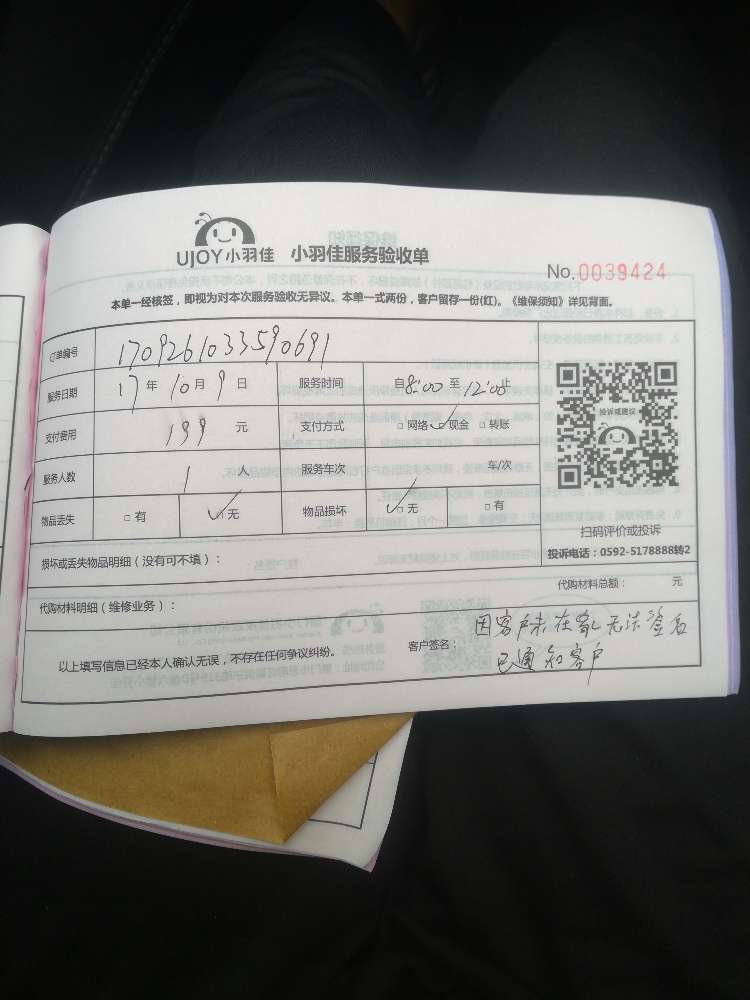 UJOY小羽佳 小羽佳服务验收单
No.0039424
本单一经核签，即视为对本次服务验收无异议。本单一式两份，客户留存一份(红)。《维保须知》详见背面。
订单编号 1709261033590691
服务日期 17年10月9日 服务时间 自8:00至12:00止
支付费用 199 元 支付方式 □网络 ☑现金 □转账
服务人数 1 人 服务车次 车/次
物品丢失 □有 ☑无 物品损坏 ☑无 □有
投诉或建议
扫码评价或投诉
投诉电话：0592-5178888转2
损坏或丢失物品明细（没有可不填）：
代购材料明细（维修业务）： 代购材料总额： 元
以上填写信息已经本人确认无误，不存在任何争议纠纷。 客户签名： 因客户未在家无法签名
已通知客户